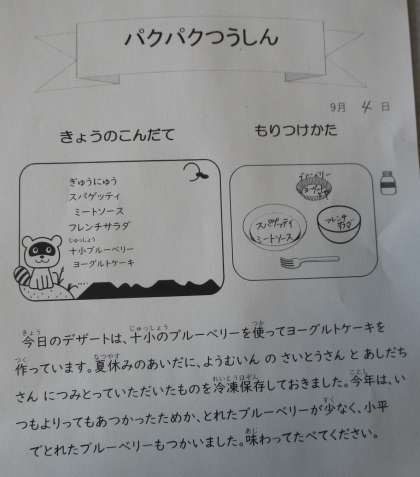 パクパクつうしん
9月 4 日
きょうのこんだて
もりつけかた
ぎゅうにゅう
スパゲッティ
ミートソース
フレンチサラダ
じゅっしょう
十小ブルーベリー
ヨーグルトケーキ
ブルーベリー
スパゲッティ
ミートソース
フレンチ
サラダ
きょう じゅっしょう つか
今日のデザートは、十小のブルーベリーを使ってヨーグルトケーキを
つく なつやす
作っています。夏休みのあいだに、ようむいん の さいとうさん と あしだち
れいとうほぞん ことし
さん につみとっていただいたものを冷凍保存しておきました。今年は、い
すく
つもよりってもあつかったためか、とれたブルーベリーが少なく、小平
あじ
でとれたブルーベリーもつかいました。味わってたべてください。